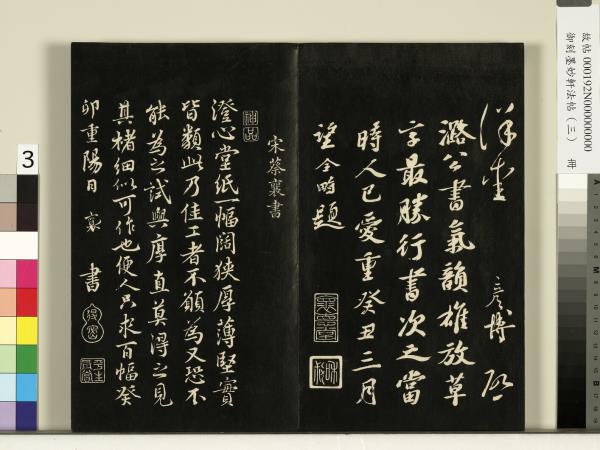 彥博 啓
潞公書氣韻雄放草
字最勝行書次之當
時人已愛重癸丑三月
望全時題
宋蔡襄書
澄心堂紙一幅闊狹厚薄堅實
皆類此乃佳工者不願為又恐不
能為之試與厚直莫得之見
其楮細似可作也便人只求百幅癸
卯重陽日 襄 書
故帖 000192N000000000
御刻墨妙軒法帖(三) 冊
3